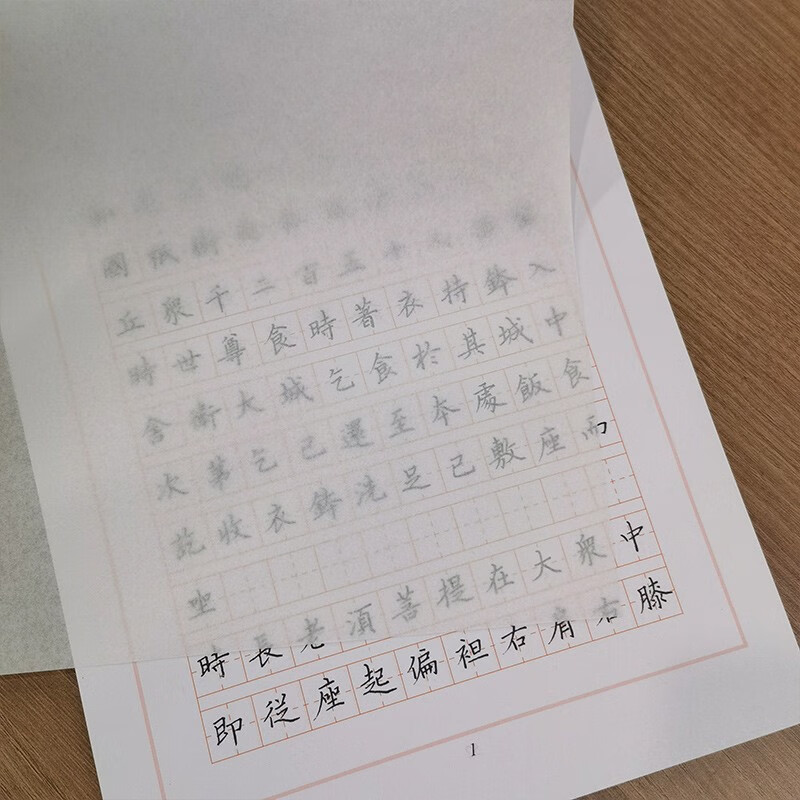 國祇樹給孤獨
丘衆千二百五十人俱爾
時世尊食時著衣持鉢入
舍衛大城乞食於其城中
次第乞已還至本處飯食
訖收衣鉢洗足已敷座而
坐
時長老須菩提在大衆中
即從座起偏袒右肩右膝
1